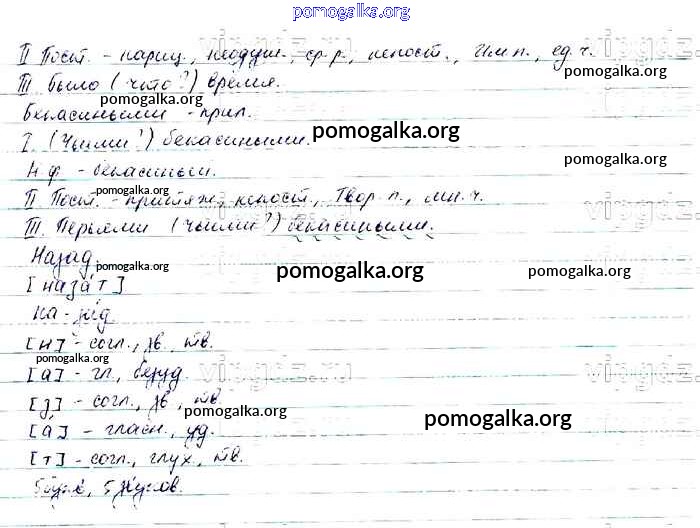 pomogalka.org
II Пост. - нариц., неодуш., ср.р., непост., Им.п., ед.ч.
pomogalka.org
III. было (что?) время.
pomogalka.org
Бекасиными - прил.
I. (Чьими?) бекасиными.
pomogalka.org
pomogalka.org
Н.ф - бекасиный.
pomogalka.org
II Пост. - притяж., непост., Твор.п., мн.ч.
vipgdz.
III. Перьями (чьими?) бекасиными.
Назад.
pomogalka.org
[наза́т]
pomogalka.org
pomogalka.org
на-зад.
[н] - согл., зв., тв.
pomogalka.org
vipgdz.ru
vipgdz.
[а] - гл., безуд.
[з] - согл., зв., тв.
pomogalka.org
pomogalka.org
[а́] - гласн., уд.
[т] - согл., глух., тв.
5 букв, 5 звуков.